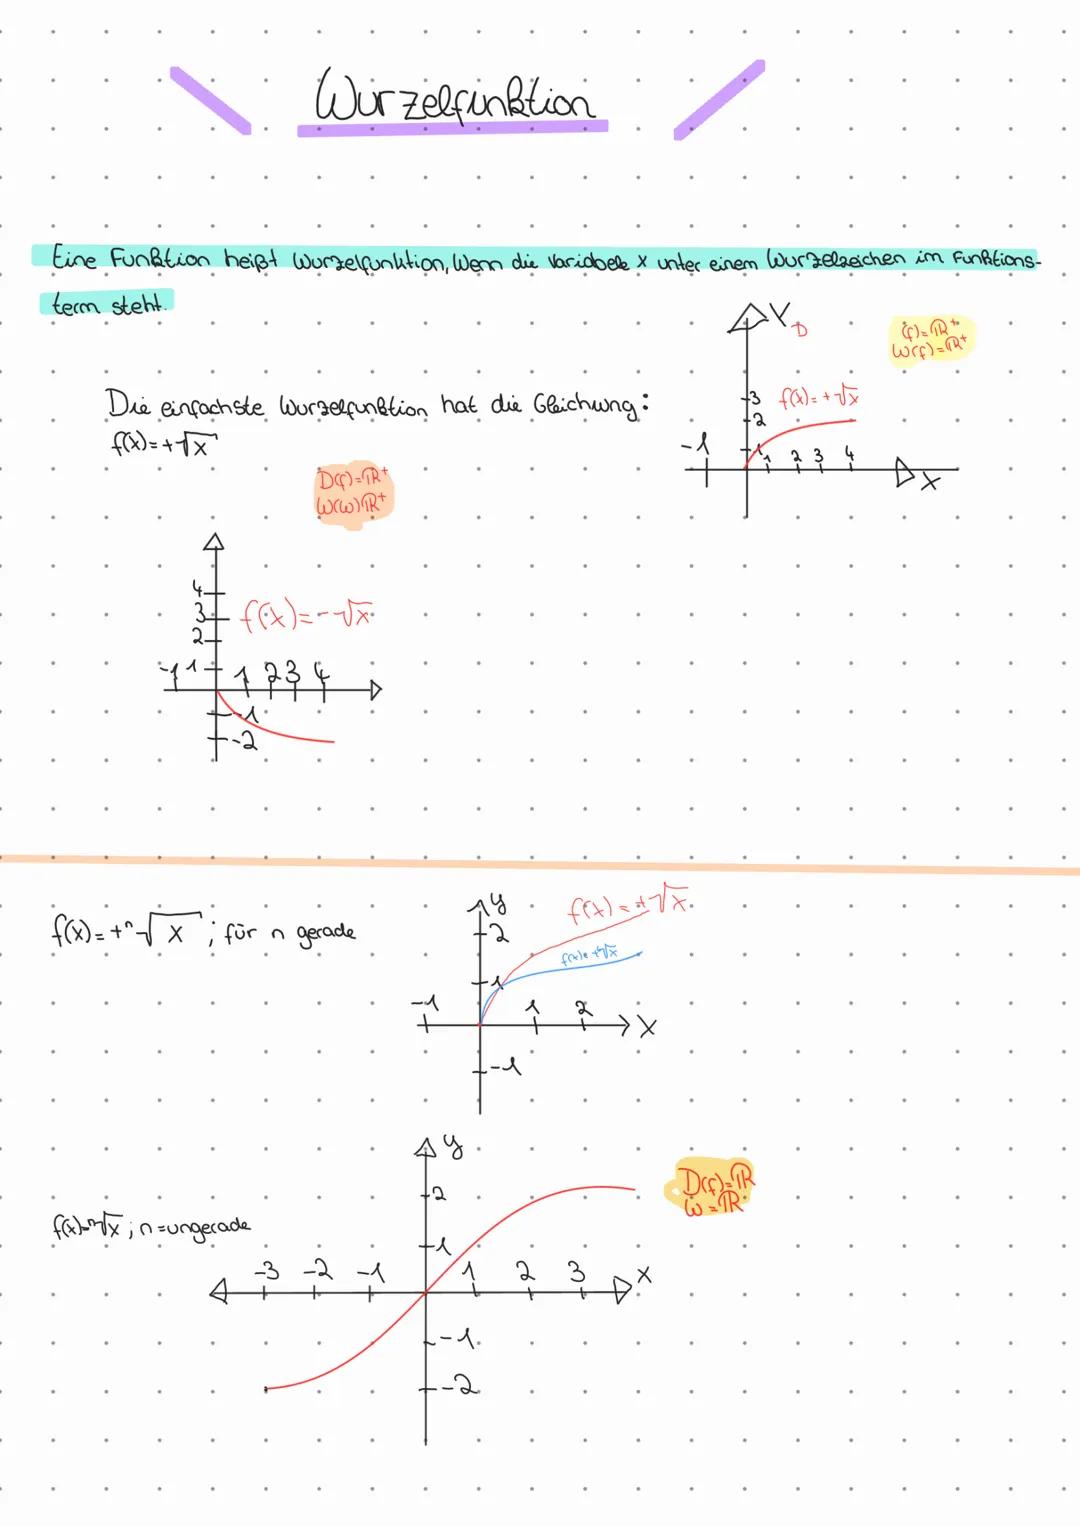 Wurzelfunktion
Eine Funktion heißt Wurzelfunktion, wenn die Variabele x unter einem Wurzelzeichen im Funktions-
term steht.
Y
D
(f)=ℝ⁺
W(f)=ℝ⁺
3 f(x)=+√x
2
-1 1 1 2 3 4
X
Die einfachste Wurzelfunktion hat die Gleichung:
f(x)=+√x
D(f)=ℝ⁺
W(w)ℝ⁺
4
3 f(x)=-√x
2
-1 1 1 2 3 4
-1
-2
f(x)=+ⁿ√x ; für n gerade
y
2
f(x)=+√x
f(x)=+⁴√x
1
-1 1 2 X
-1
y
D(f)=ℝ
W=ℝ
2
f(x)=ⁿ√x ; n=ungerade
1
-3 -2 -1 1 2 3 X
-1
-2